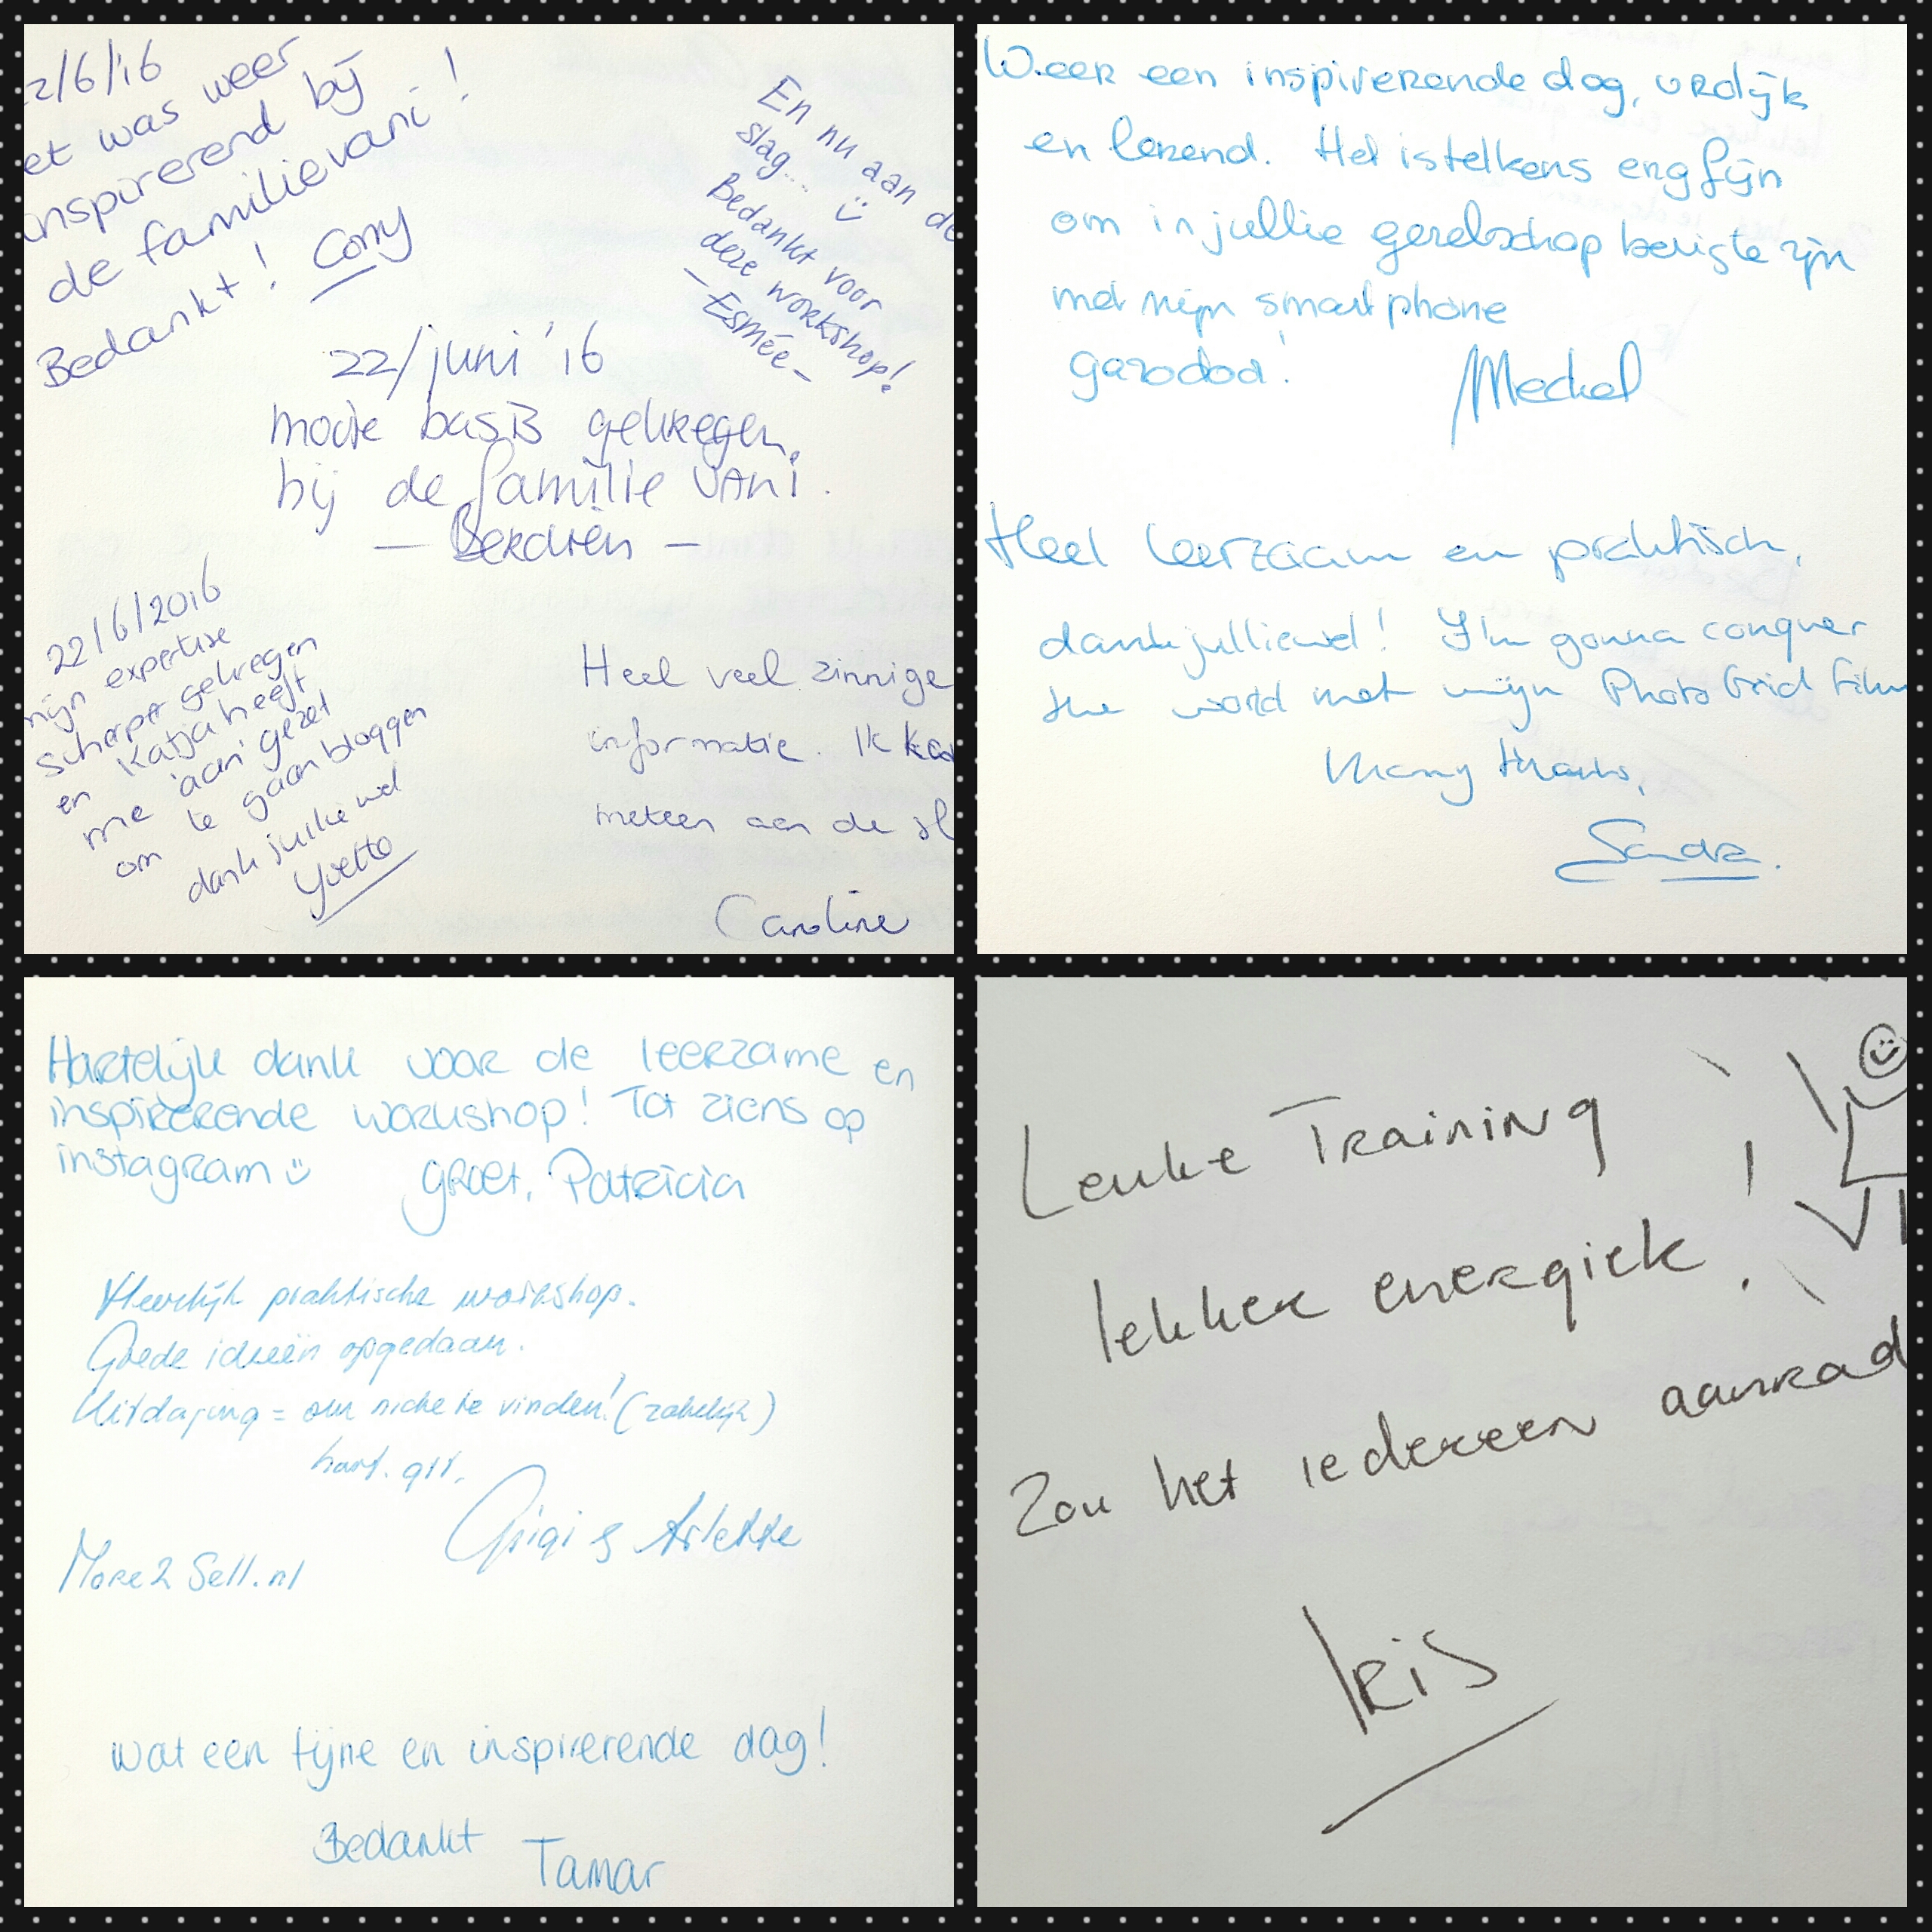 2/6/'16
et was weer
nspirerend bij
de familievani!
Bedankt! Corry
En nu aan de
slag... ☺
Bedankt voor
deze workshop!
- Esmée -
22/juni '16
mooie basis gekregen
bij de familie VAni.
- Berdien -
22/6/2016
mijn expertise
scherper gekregen
en Katja heeft
me 'aan' gezet
om te gaan bloggen
dank jullie wel
Yvette
Heel veel zinnige
informatie. Ik kan
meteen aan de sl
Caroline
Weer een inspirerende dag, vrolijk
en lerend. Het is telkens erg fijn
om in jullie gezelschap bezig te zijn
met mijn smartphone
Heel leerzaam en praktisch,
dank jullie wel! I'm gonna conquer
the world met mijn PhotoGrid film
Many thanks,
Sandra.
Hartelijk dank voor de leerzame en
inspirerende workshop! Tot ziens op
instagram ☺ groet, Patricia
Heerlijk praktische workshop.
Goede ideeën opgedaan.
Uitdaging = om niche te vinden! (zakelijk)
hart. grt.
Gigi & Arlette
More2Sell.nl
wat een fijne en inspirerende dag!
Bedankt Tamar
Leuke Training!
lekker energiek!
Zou het iedereen aanrad
Iris